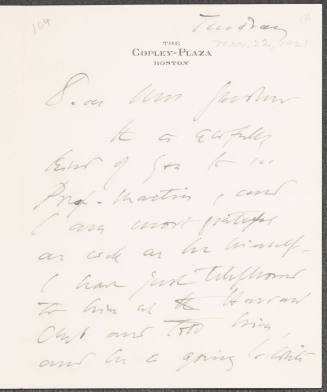 169
Tuesday
Mar. 22, 1921
THE
COPLEY-PLAZA
BOSTON
Dear Mrs Gardner
It is awfully
kind of you to
Prof. Martin, and
I am most grateful
as well as he himself.
I have just telephoned
to him at the Harvard
Club and told him,
and he is going to write